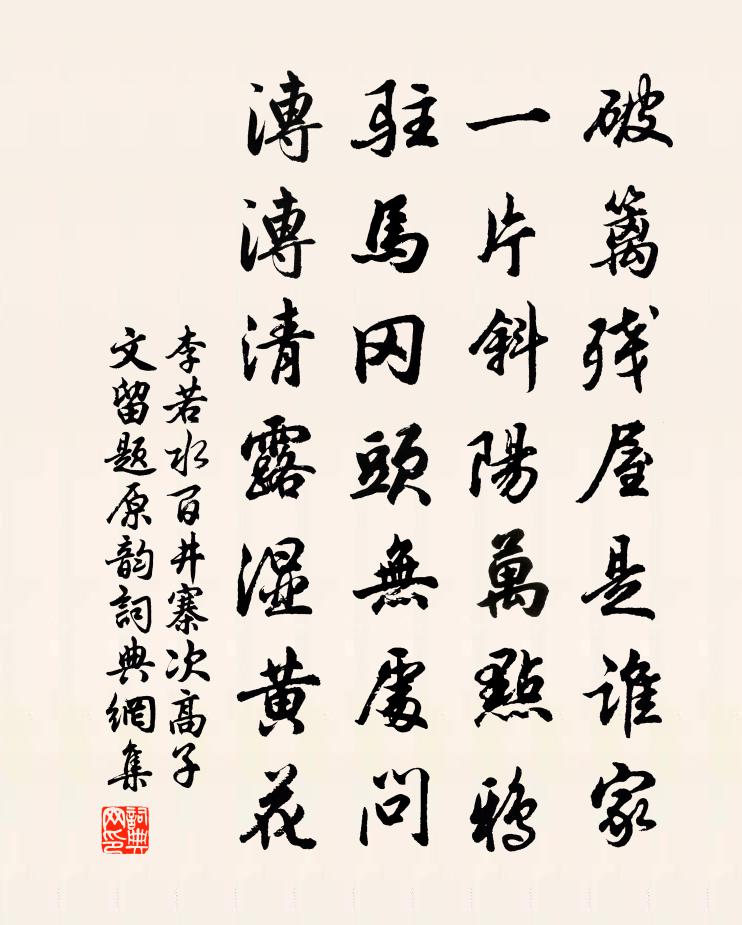 破籬残屋是谁家
一片斜陽萬點鴉
駐馬冈頭無處問
漙漙清露濕黄花
李若水百井寨次高子
文留题原韵詞典網集
詞典網印